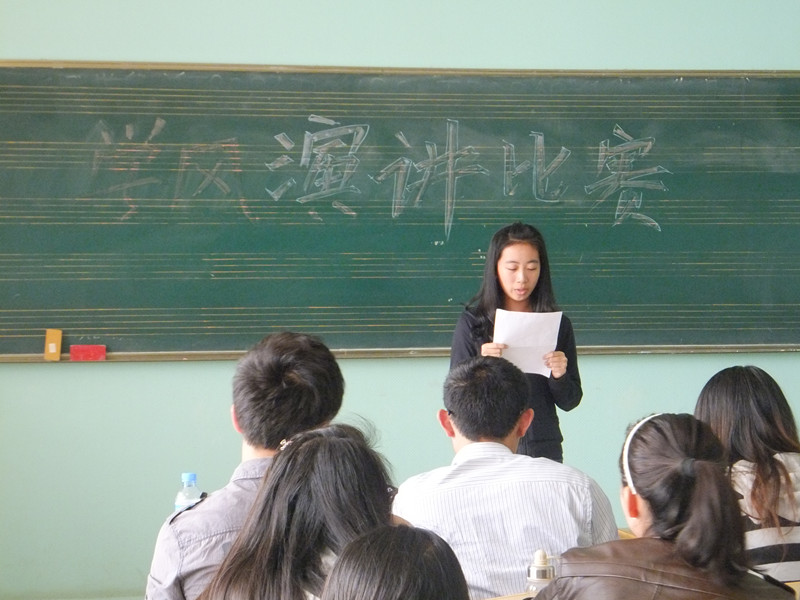 学风演讲比赛